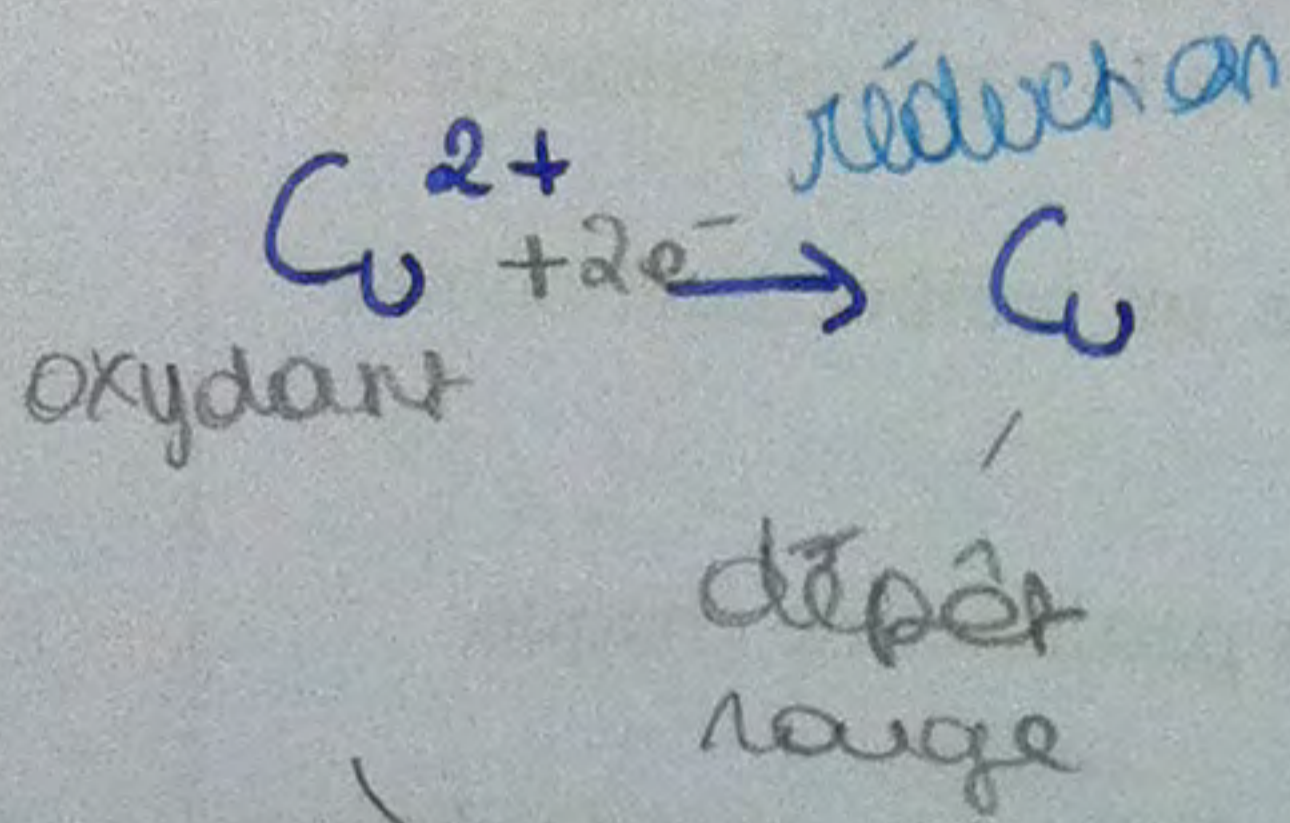 réduction
Cu²⁺ +2e⁻ → Cu
oxydant
dépôt
rouge